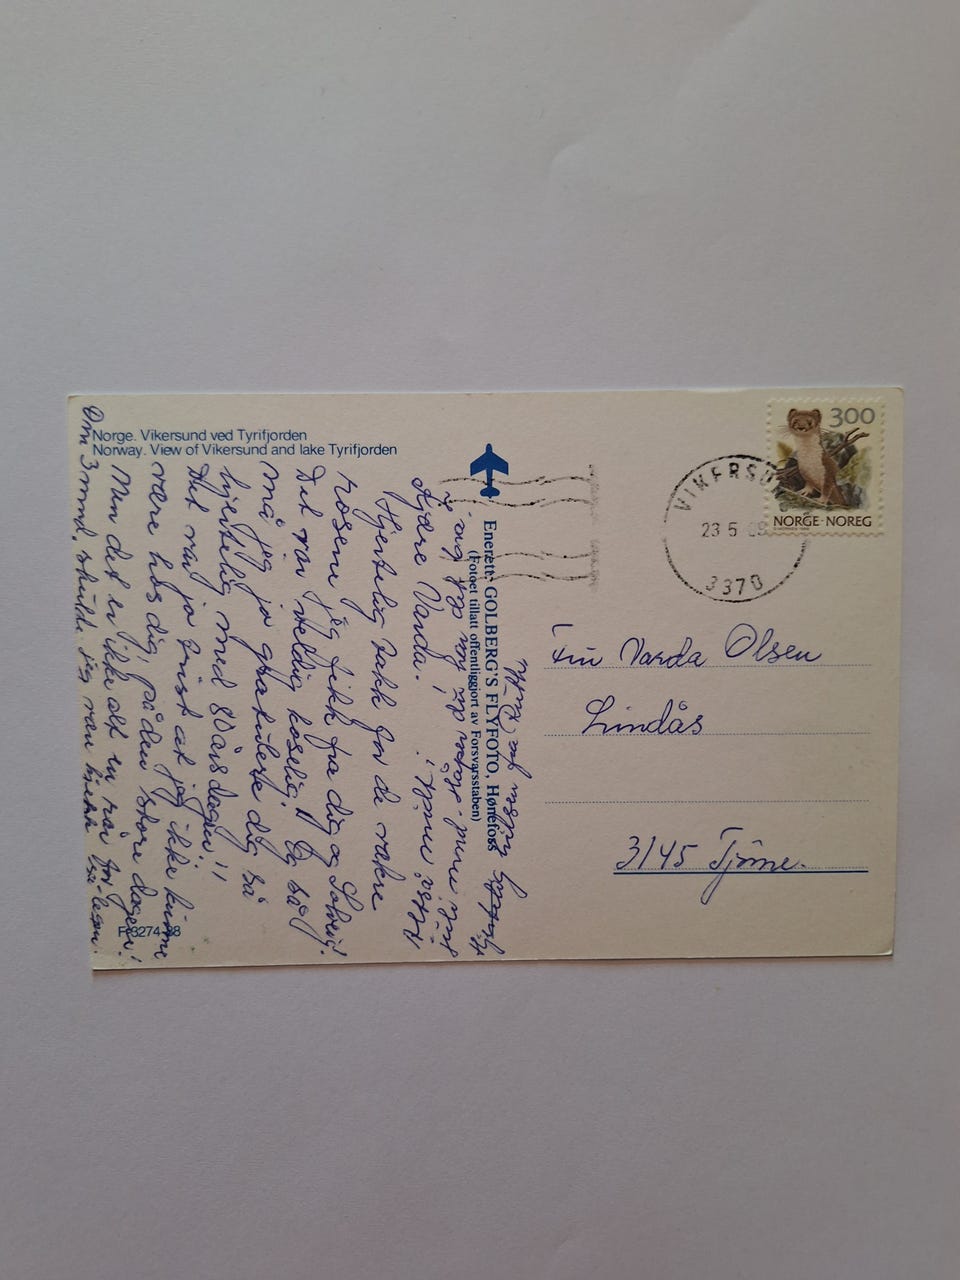 Norge. Vikersund ved Tyrifjorden
Norway. View of Vikersund and lake Tyrifjorden
Kjære Varda.
Hjertelig takk for de vakre
rosene jeg fikk fra dig og Solveig!
Det var veldig koselig! Og så
må jeg jo gratulere dig så
hjertelig med 80 års dagen!!
Det var jo trist at jeg ikke kunne
være hos dig, på den store dagen!
Men det er ikke alt en rår for
Om 3 mnd. skulde jeg
F-8274-38
Enerett: GOLBERG'S FLYFOTO, Hønefoss
(Fotoet tillatt offentliggjort av Forsvarsstaben)
300
NORGE·NOREG
VIKERSU
23 5 89
3370
Fru Varda Olsen
Lindås
3145 Tjøme.